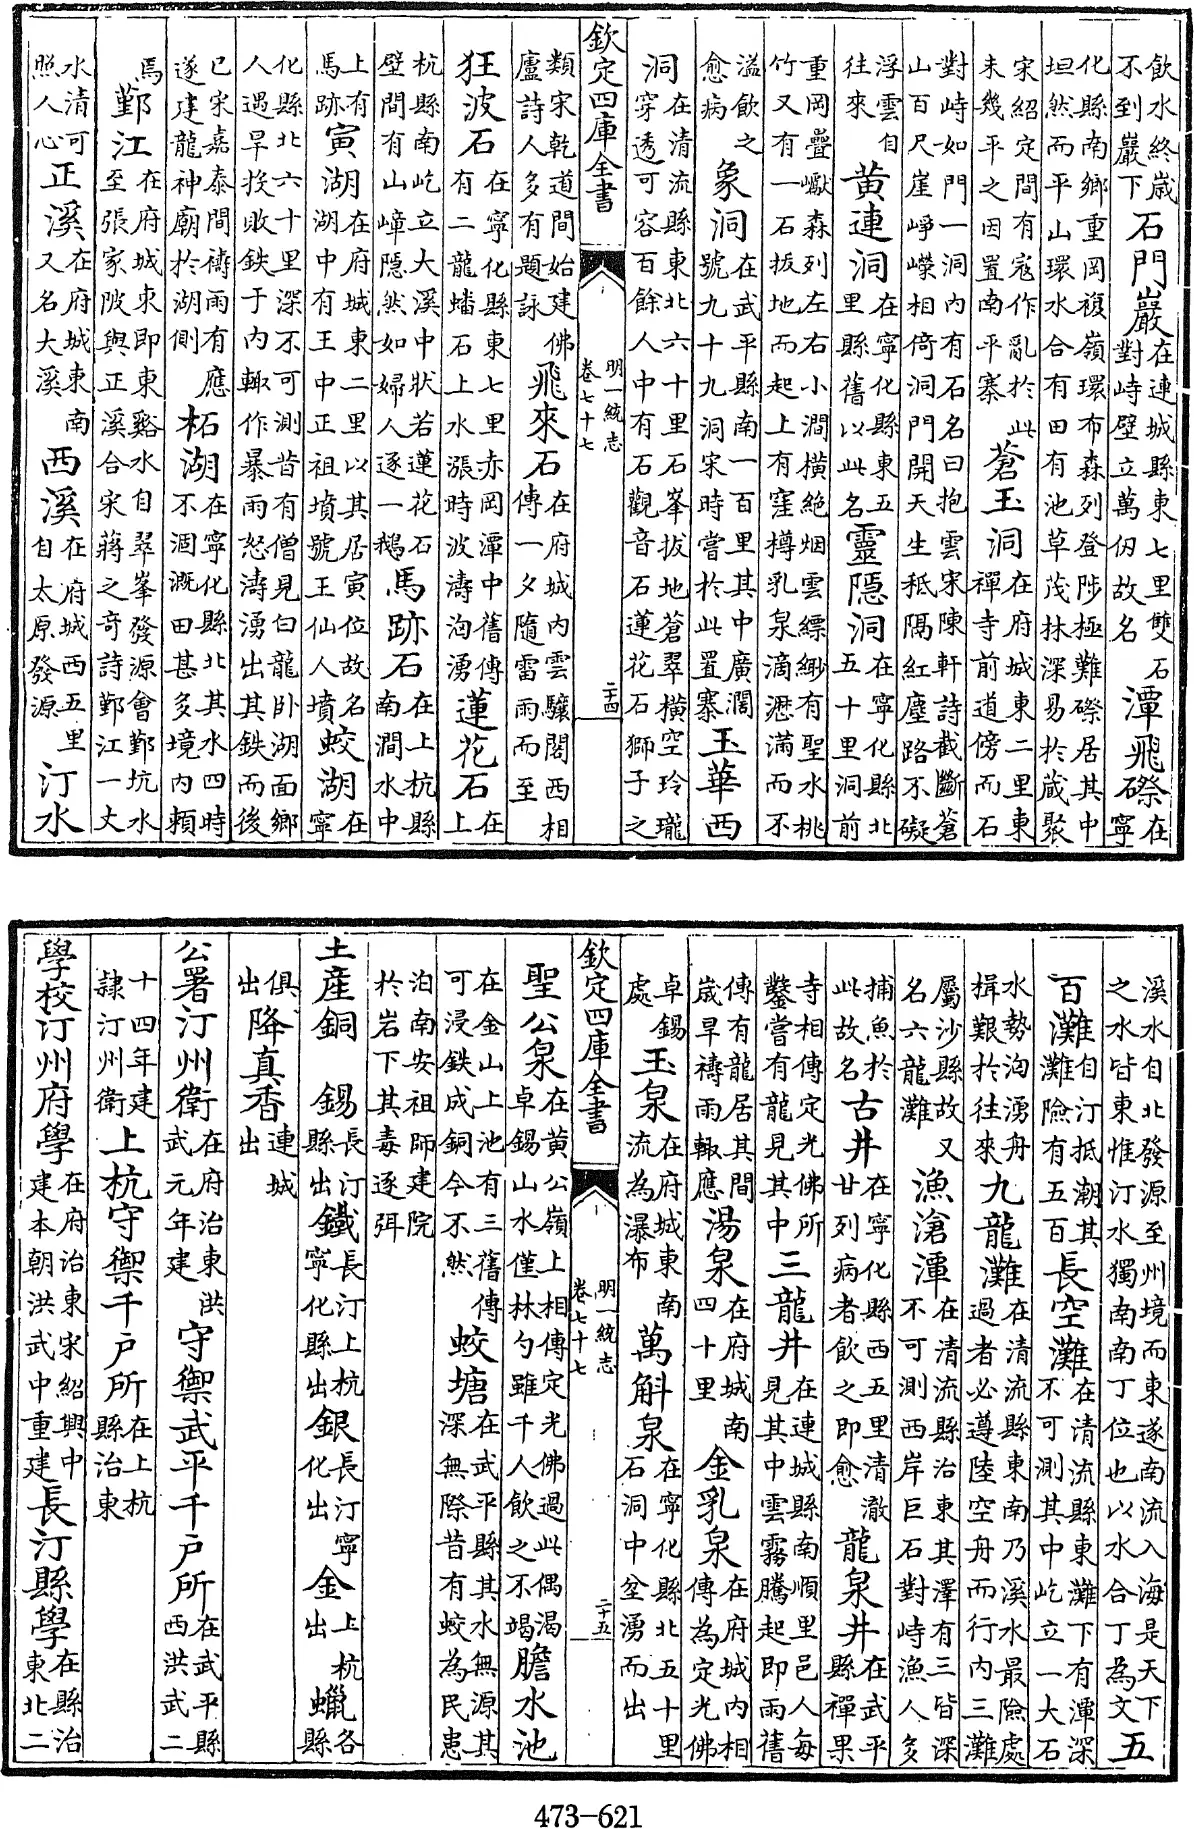 飲水終歲不到巖下石門巖在連城縣東七里雙石對峙壁立萬仞故名潭飛磜在寧
化縣南鄉重岡複嶺環布森列登陟極難磜居其中坦然而平山環水合有田有池草茂林深易於藏聚
宋紹定間有宼作亂於此未幾平之因置南平寨蒼玉洞在府城東二里東禪寺前道傍而石
對峙如門一洞内有石名曰抱雲宋陳軒詩截斷蒼山百尺崖崢嶸相倚洞門開天生秪隔紅塵路不礙
浮雲自往來黄連洞在寧化縣東五里縣舊以此名靈隠洞在寧化縣北五十里洞前
重岡疊巘森列左右小澗横絶烟雲縹緲有聖水桃竹又有一石拔地而起上有窪樽乳泉滴瀝滿而不
溢飲之愈病象洞在武平縣南一百里其中廣濶號九十九洞宋時嘗於此置寨玉華西
洞在清流縣東北六十里石峯拔地蒼翠横空玲瓏穿透可容百餘人中有石觀音石蓮花石獅子之
欽定四庫全書
明一統志
卷七十七
二十四
類宋乾道間始建佛廬詩人多有題詠飛來石在府城内雲驤閣西相傳一夕隨雷雨而至
狂波石在寧化縣東七里赤岡潭中舊傳有二龍蟠石上水漲時波濤洶湧蓮花石在上
杭縣南屹立大溪中狀若蓮花石壁間有山嶂隠然如婦人逐一鵝馬跡石在上杭縣南澗水中
上有馬跡寅湖在府城東二里以其居寅位故名湖中有王中正祖墳號王仙人墳蛟湖在寧
化縣北六十里深不可測昔有僧見白龍卧湖面鄉人遇旱投敗鉄于内輙作暴雨怒濤湧出其鉄而後
已宋嘉泰間禱雨有應遂建龍神廟於湖側柘湖在寧化縣北其水四時不涸溉田甚多境内頼
焉鄞江在府城東即東谿水自翠峯發源會鄞坑水至張家陂與正溪合宋蔣之奇詩鄞江一丈
水清可照人心正溪在府城東南又名大溪西溪在府城西五里自太原發源汀水
溪水自北發源至州境而東遂南流入海是天下之水皆東惟汀水獨南南丁位也以水合丁為文五
百灘自汀抵潮其灘險有五百長空灘在清流縣東灘下有潭深不可測其中屹立一大石
水勢洶湧舟揖艱於往來九龍灘在清流縣東南乃溪水最險處過者必遵陸空舟而行内三灘
屬沙縣故又名六龍灘漁滄潭在清流縣治東其澤有三皆深不可測西岸巨石對峙漁人多
捕魚於此故名古井在寧化縣西五里清澈甘列病者飲之即愈龍泉井在武平縣禪果
寺相傳定光佛所鑿嘗有龍見其中三龍井在連城縣南順里邑人每見其中雲霧騰起即雨舊
傳有龍居其間歲旱禱雨輙應湯泉在府城南四十里金乳泉在府城内相傳為定光佛
卓錫處玉泉在府城東南流為瀑布萬斛泉在寧化縣北五十里石洞中坌湧而出
欽定四庫全書
明一統志
卷七十七
二十五
聖公泉在黄公嶺上相傳定光佛過此偶渴卓錫山水僅林勺雖千人飲之不竭膽水池
在金山上池有三舊傳可浸鉄成銅今不然蛟塘在武平縣其水無源其深無際昔有蛟為民患
泊南安祖師建院於岩下其毒逐弭
土産銅錫長汀縣出鐵長汀上杭寧化縣出銀長汀寧化出金上杭出蠟各縣
俱出降真香連城出
公署汀州衛在府治東洪武元年建守禦武平千戶所在武平縣西洪武二
十四年建隷汀州衛上杭守禦千戶所在上杭縣治東
學校汀州府學在府治東宋紹興中建本朝洪武中重建長汀縣學在縣治東北二
473-621